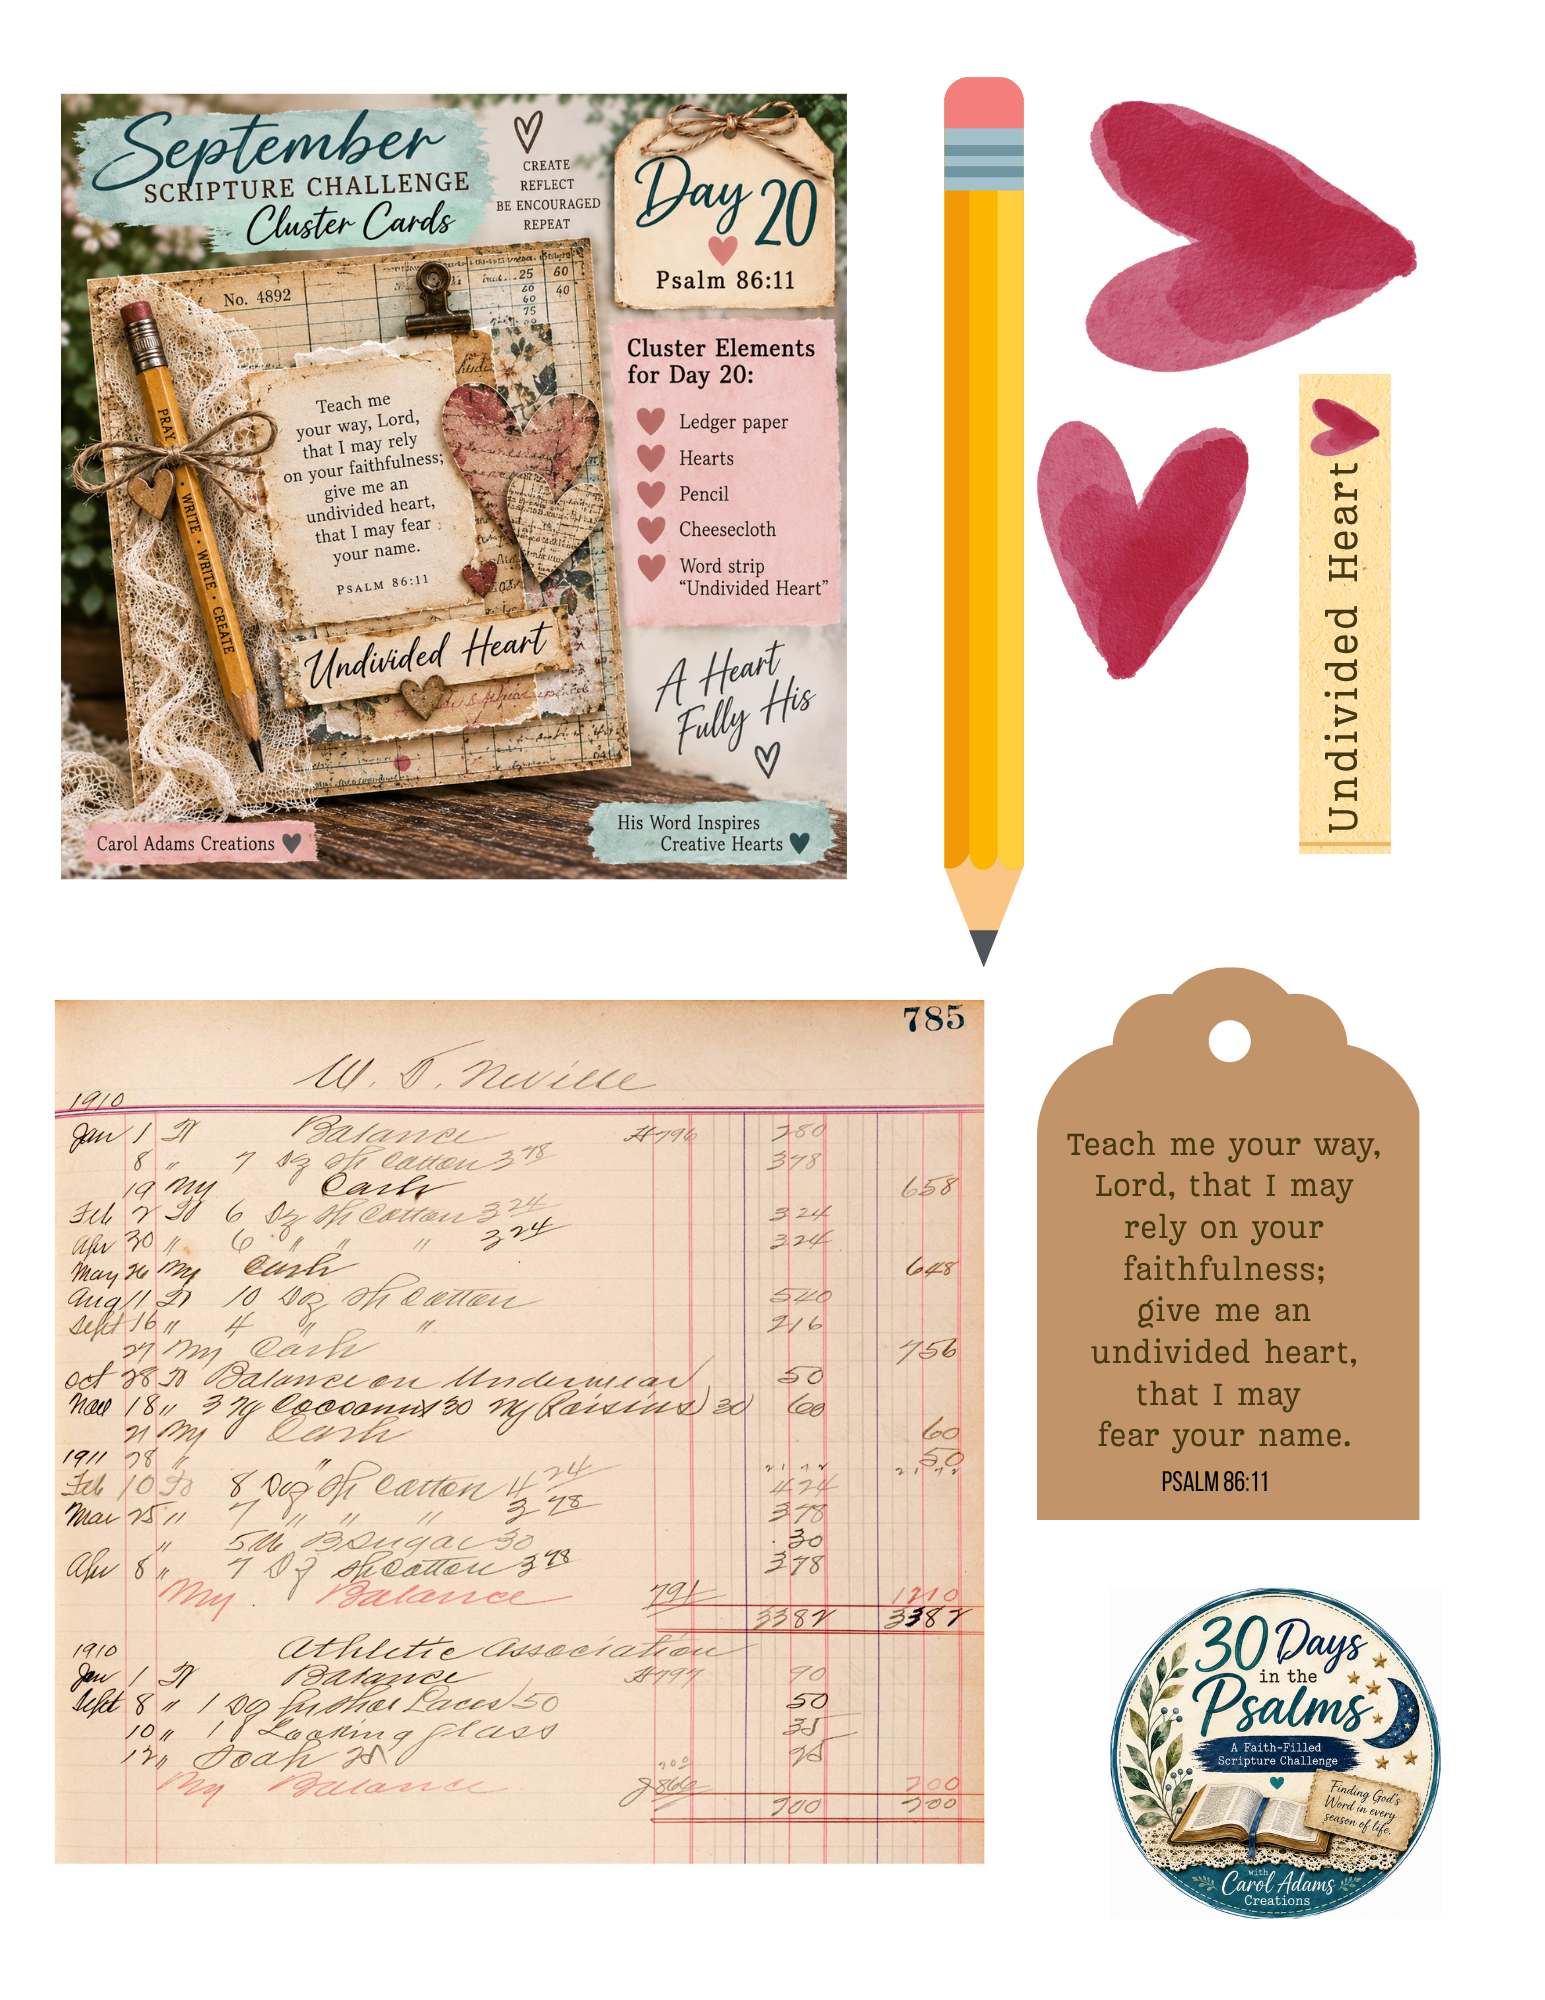 September
SCRIPTURE CHALLENGE
Cluster Cards
CREATE
REFLECT
BE ENCOURAGED
REPEAT
Day 20
Psalm 86:11
No. 4892
25 60
40
60
75
Teach me
your way, Lord,
that I may rely
on your faithfulness;
give me an
undivided heart,
that I may fear
your name.
PSALM 86:11
PRAY • WRITE • WRITE • CREATE
Undivided Heart
Cluster Elements
for Day 20:
Ledger paper
Hearts
Pencil
Cheesecloth
Word strip
“Undivided Heart”
A Heart
Fully His
Carol Adams Creations
His Word Inspires
Creative Hearts
Undivided Heart
785
W. T. Neville
1910
Jan 1 To Balance 796 280
8 " 7 Dz Cotton 3 78 378
19 By Cash 658
Feb 2 To 6 Dz Cotton 3 24 324
Apr 30 " 6 " " " 3 24 324
May 26 By Cash 648
Aug 11 To 10 Doz Cotton 540
Sept 16 " 4 " " 216
27 By Cash 756
Oct 28 To Balance on Underwear 50
Nov 18 " 3 Cocoanuts 30 Raisins 30 60
21 By Cash 60
1911 28 " " 50
Feb 10 To 8 Doz Cotton 4 24 424
Mar 25 " 7 " " " 3 78 378
" 5 lb B Sugar 30 30
Apr 8 " 7 Dz Cotton 3 78 378
By Balance 791 1210
3382 3382
1910 Athletic Association
Jan 1 To Balance 797 90
Sept 8 " 1 Dz Laces 50 50
10 " 1 Looking glass 35
12 " Soap 25 25
By Balance 200
200 200
Teach me your way,
Lord, that I may
rely on your
faithfulness;
give me an
undivided heart,
that I may
fear your name.
PSALM 86:11
30 Days
in the
Psalms
A Faith-Filled
Scripture Challenge
Finding God's
Word in every
season of life.
with
Carol Adams
Creations